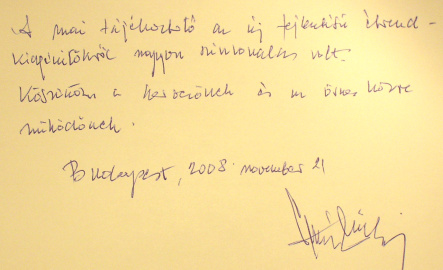 A mai tájékoztató az új fejlesztésű étrend-
kiegészítőkről nagyon színvonalas volt.
Köszönöm a szervezőnek és az összes közre
működőnek.
Budapest, 2008 november 21